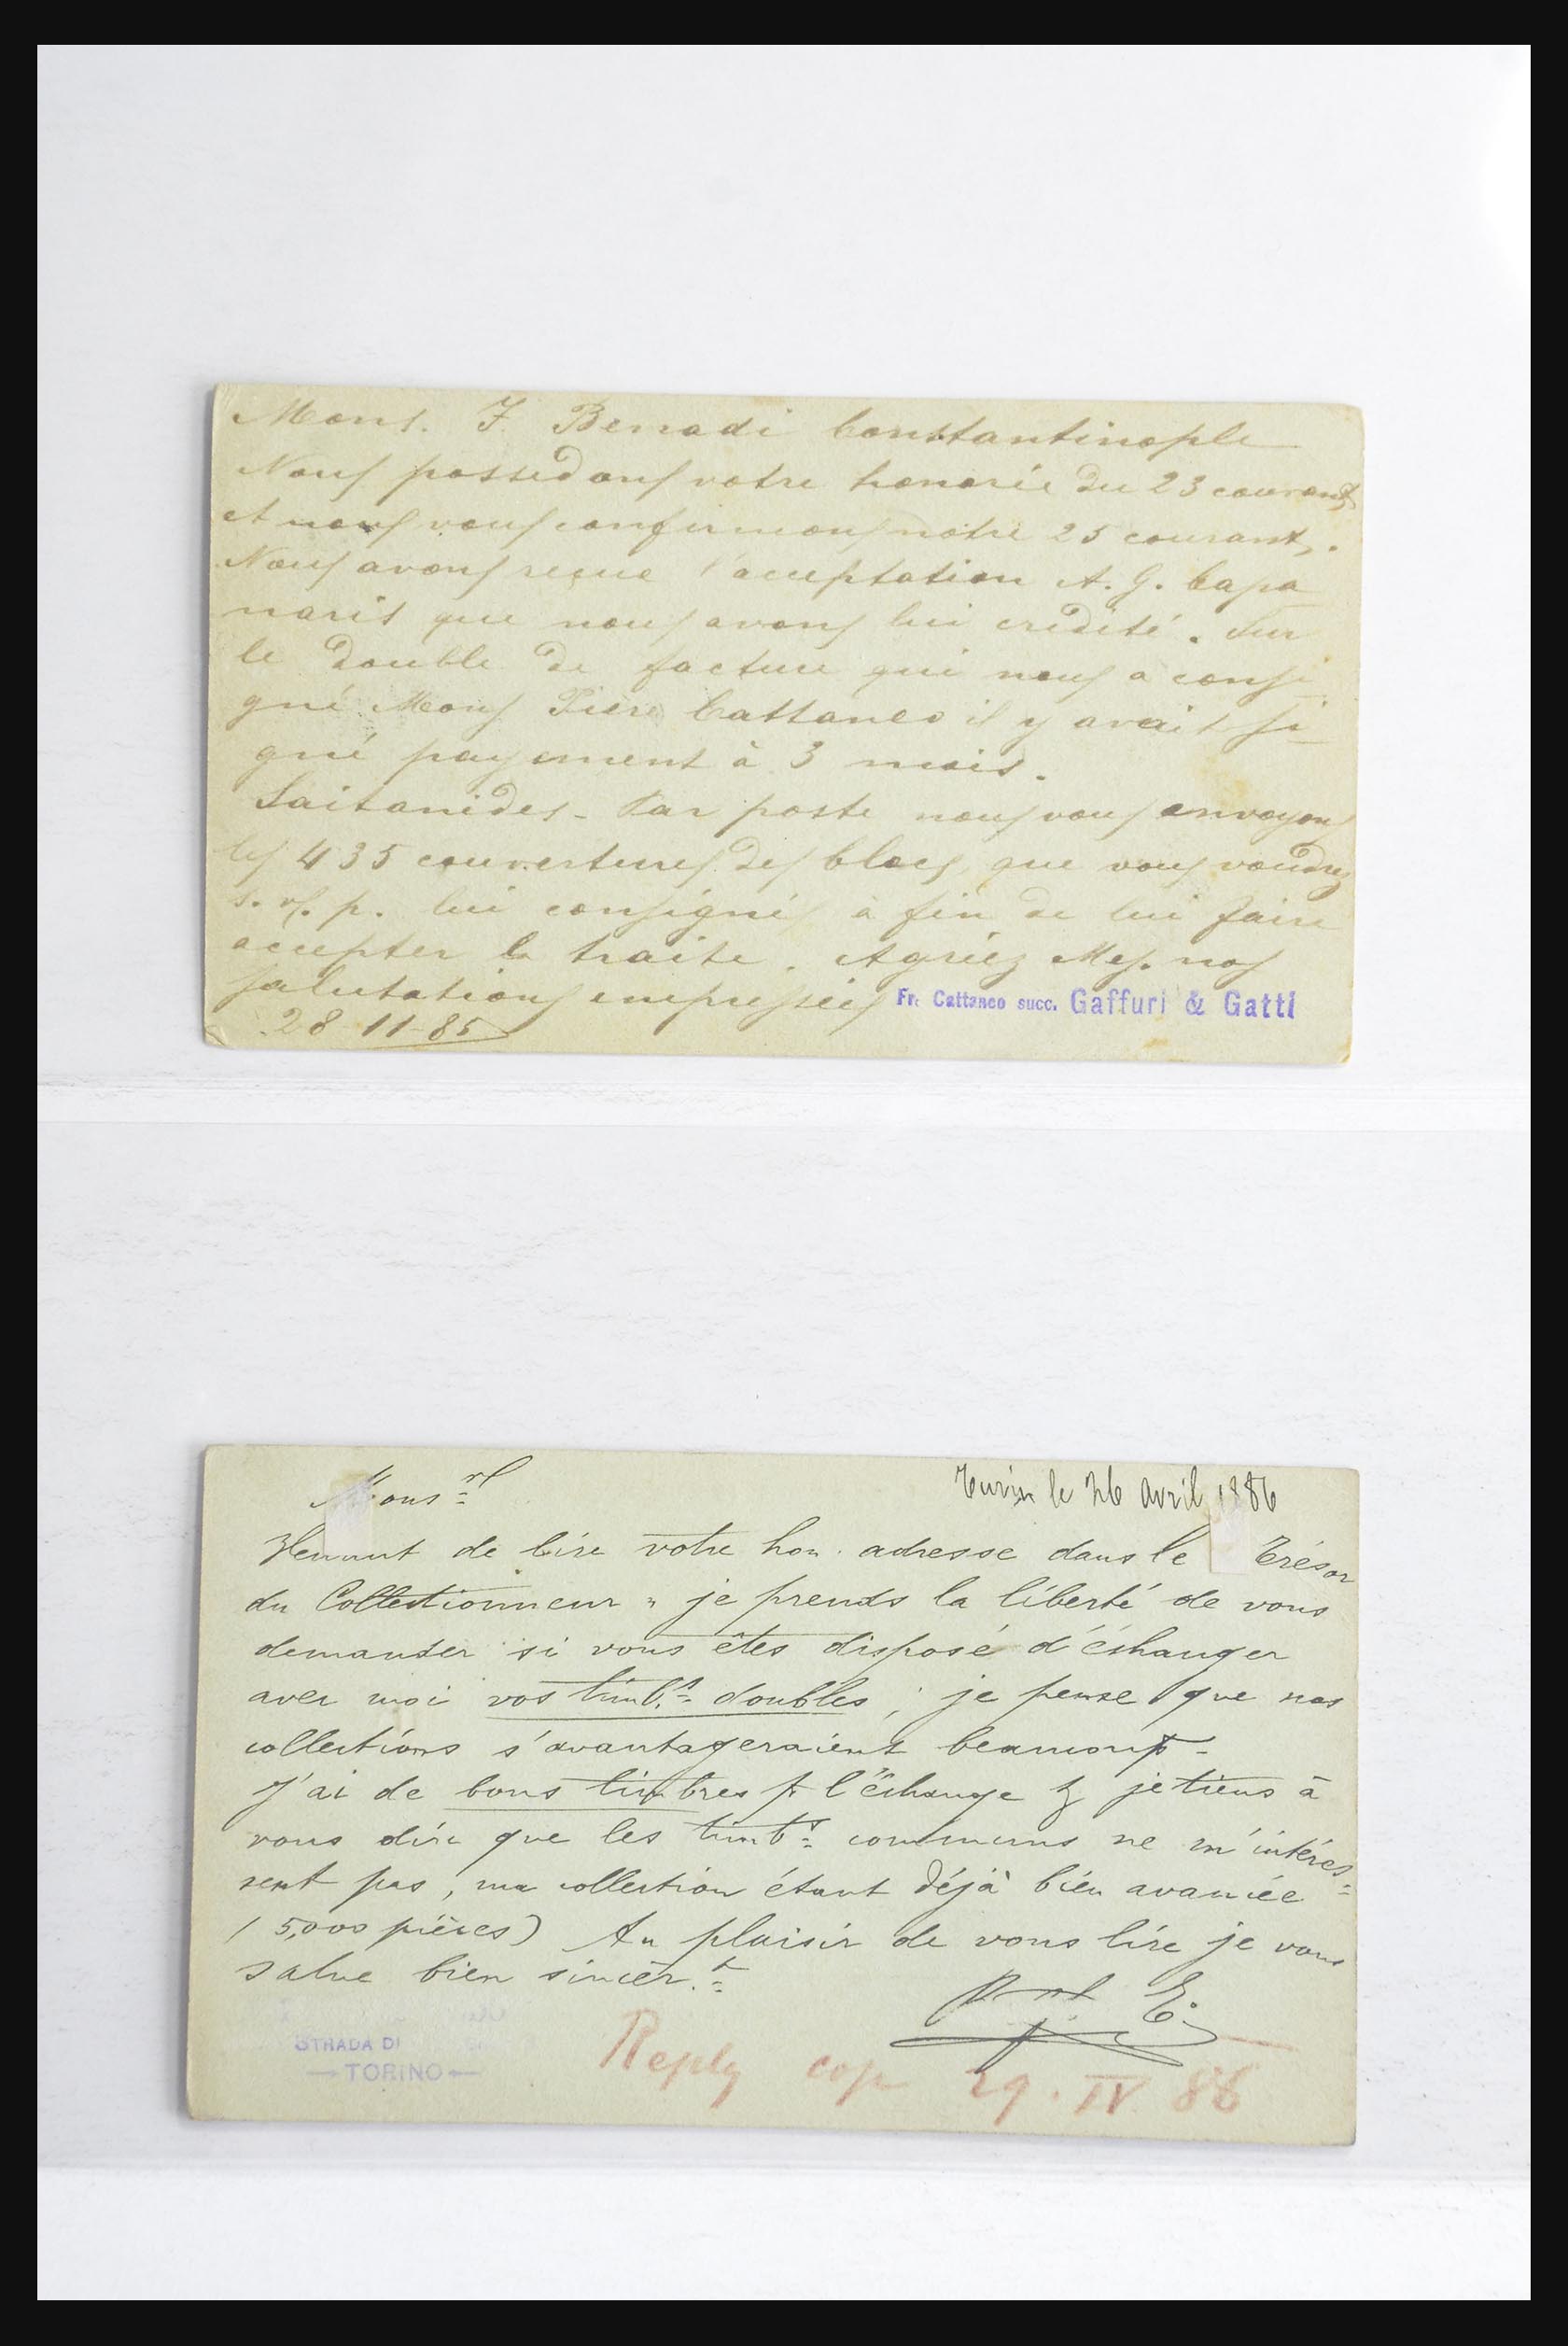 Mons. J. Benadi Constantinople
Nous possedons votre honorée du 23 courant,
et nous vous confirmons notre 25 courant.
Nous avons reçue l'acceptation A. G. Capa
naris que nous avons lui credité. Sur
le double de facture qui nous a consi
gné Mons Pière Cattaneo il y avait si
gné payement à 3 mois.
Saitanides - Par poste nous vous envoyons
les 435 couvertures des blocs, que vous voudrez
s. v. p. lui consignés à fin de lui faire
accepter la traite. Agriéz Mes. nos
salutations empressées Fr. Cattaneo succ. Gaffuri & Gatti
28-11-85
Mons.r
Turin le 26 avril 1886
Venant de lire votre hon. adresse dans le Trésor
du Collectionneur " je prends la liberté de vous
demander si vous êtes disposé d'échanger
avec moi vos timb.s doubles; je pense que nos
collections s'avantageraient beaucoup -
J'ai de bons timbres pr l'échange & je tiens à
vous dire que les timb.s communs ne m'intéres=
sent pas, ma collection étant déjà bien avancée
(5,000 pièces) Au plaisir de vous lire je vous
salue bien sincèr.t
STRADA DI
TORINO
Reply 29. IV 86